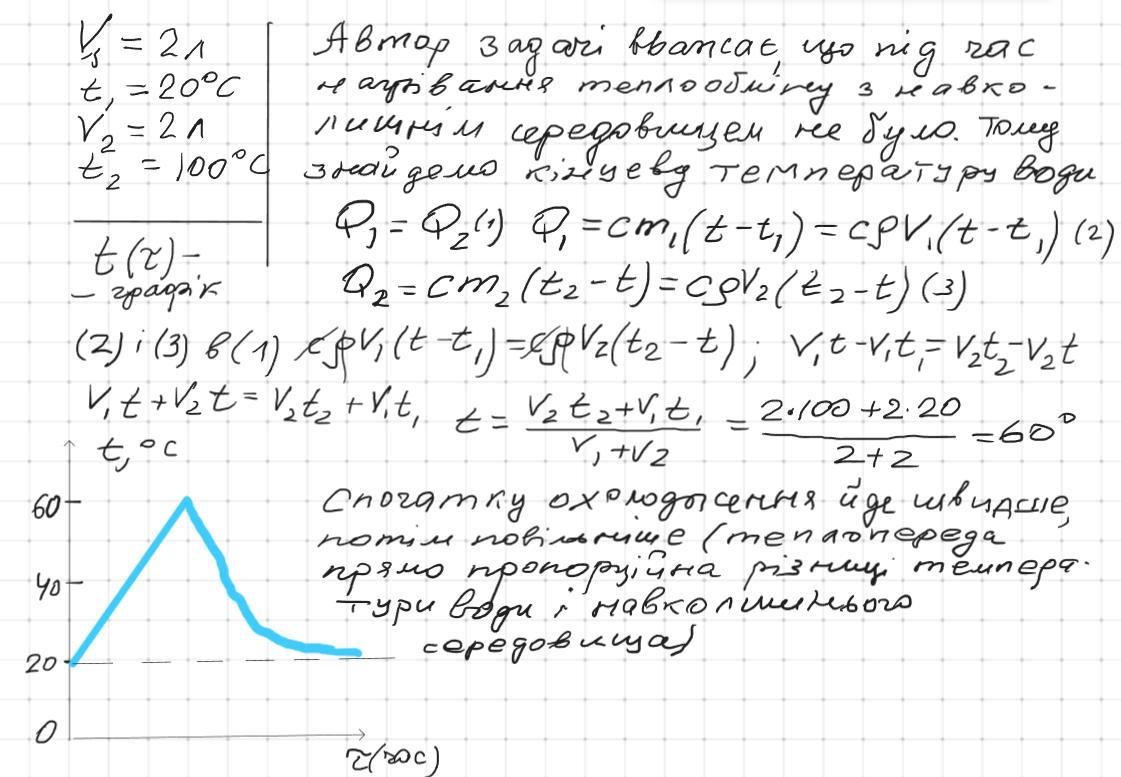 V₁ = 2л
t₁ = 20°C
V₂ = 2л
t₂ = 100°C
t(τ) –
– графік
Автор задачі вважає, що під час
нагрівання теплообміну з навко-
лишнім середовищем не було. Тому
знайдемо кінцеву температуру води
Q₁ = Q₂ (1) Q₁ = cm₁(t – t₁) = cρV₁(t – t₁) (2)
Q₂ = cm₂(t₂ – t) = cρV₂(t₂ – t) (3)
(2) і (3) в (1) cρV₁(t – t₁) = cρV₂(t₂ – t) ; V₁t – V₁t₁ = V₂t₂ – V₂t
V₁t + V₂t = V₂t₂ + V₁t₁ t = (V₂t₂ + V₁t₁)/(V₁ + V₂) = (2·100 + 2·20)/(2 + 2) = 60°
t, °C
60
40
20
0
τ(час)
Спочатку охолодження йде швидше,
потім повільніше (теплопереда
прямо пропорційна різниці темпера-
тури води і навколишнього
середовища)